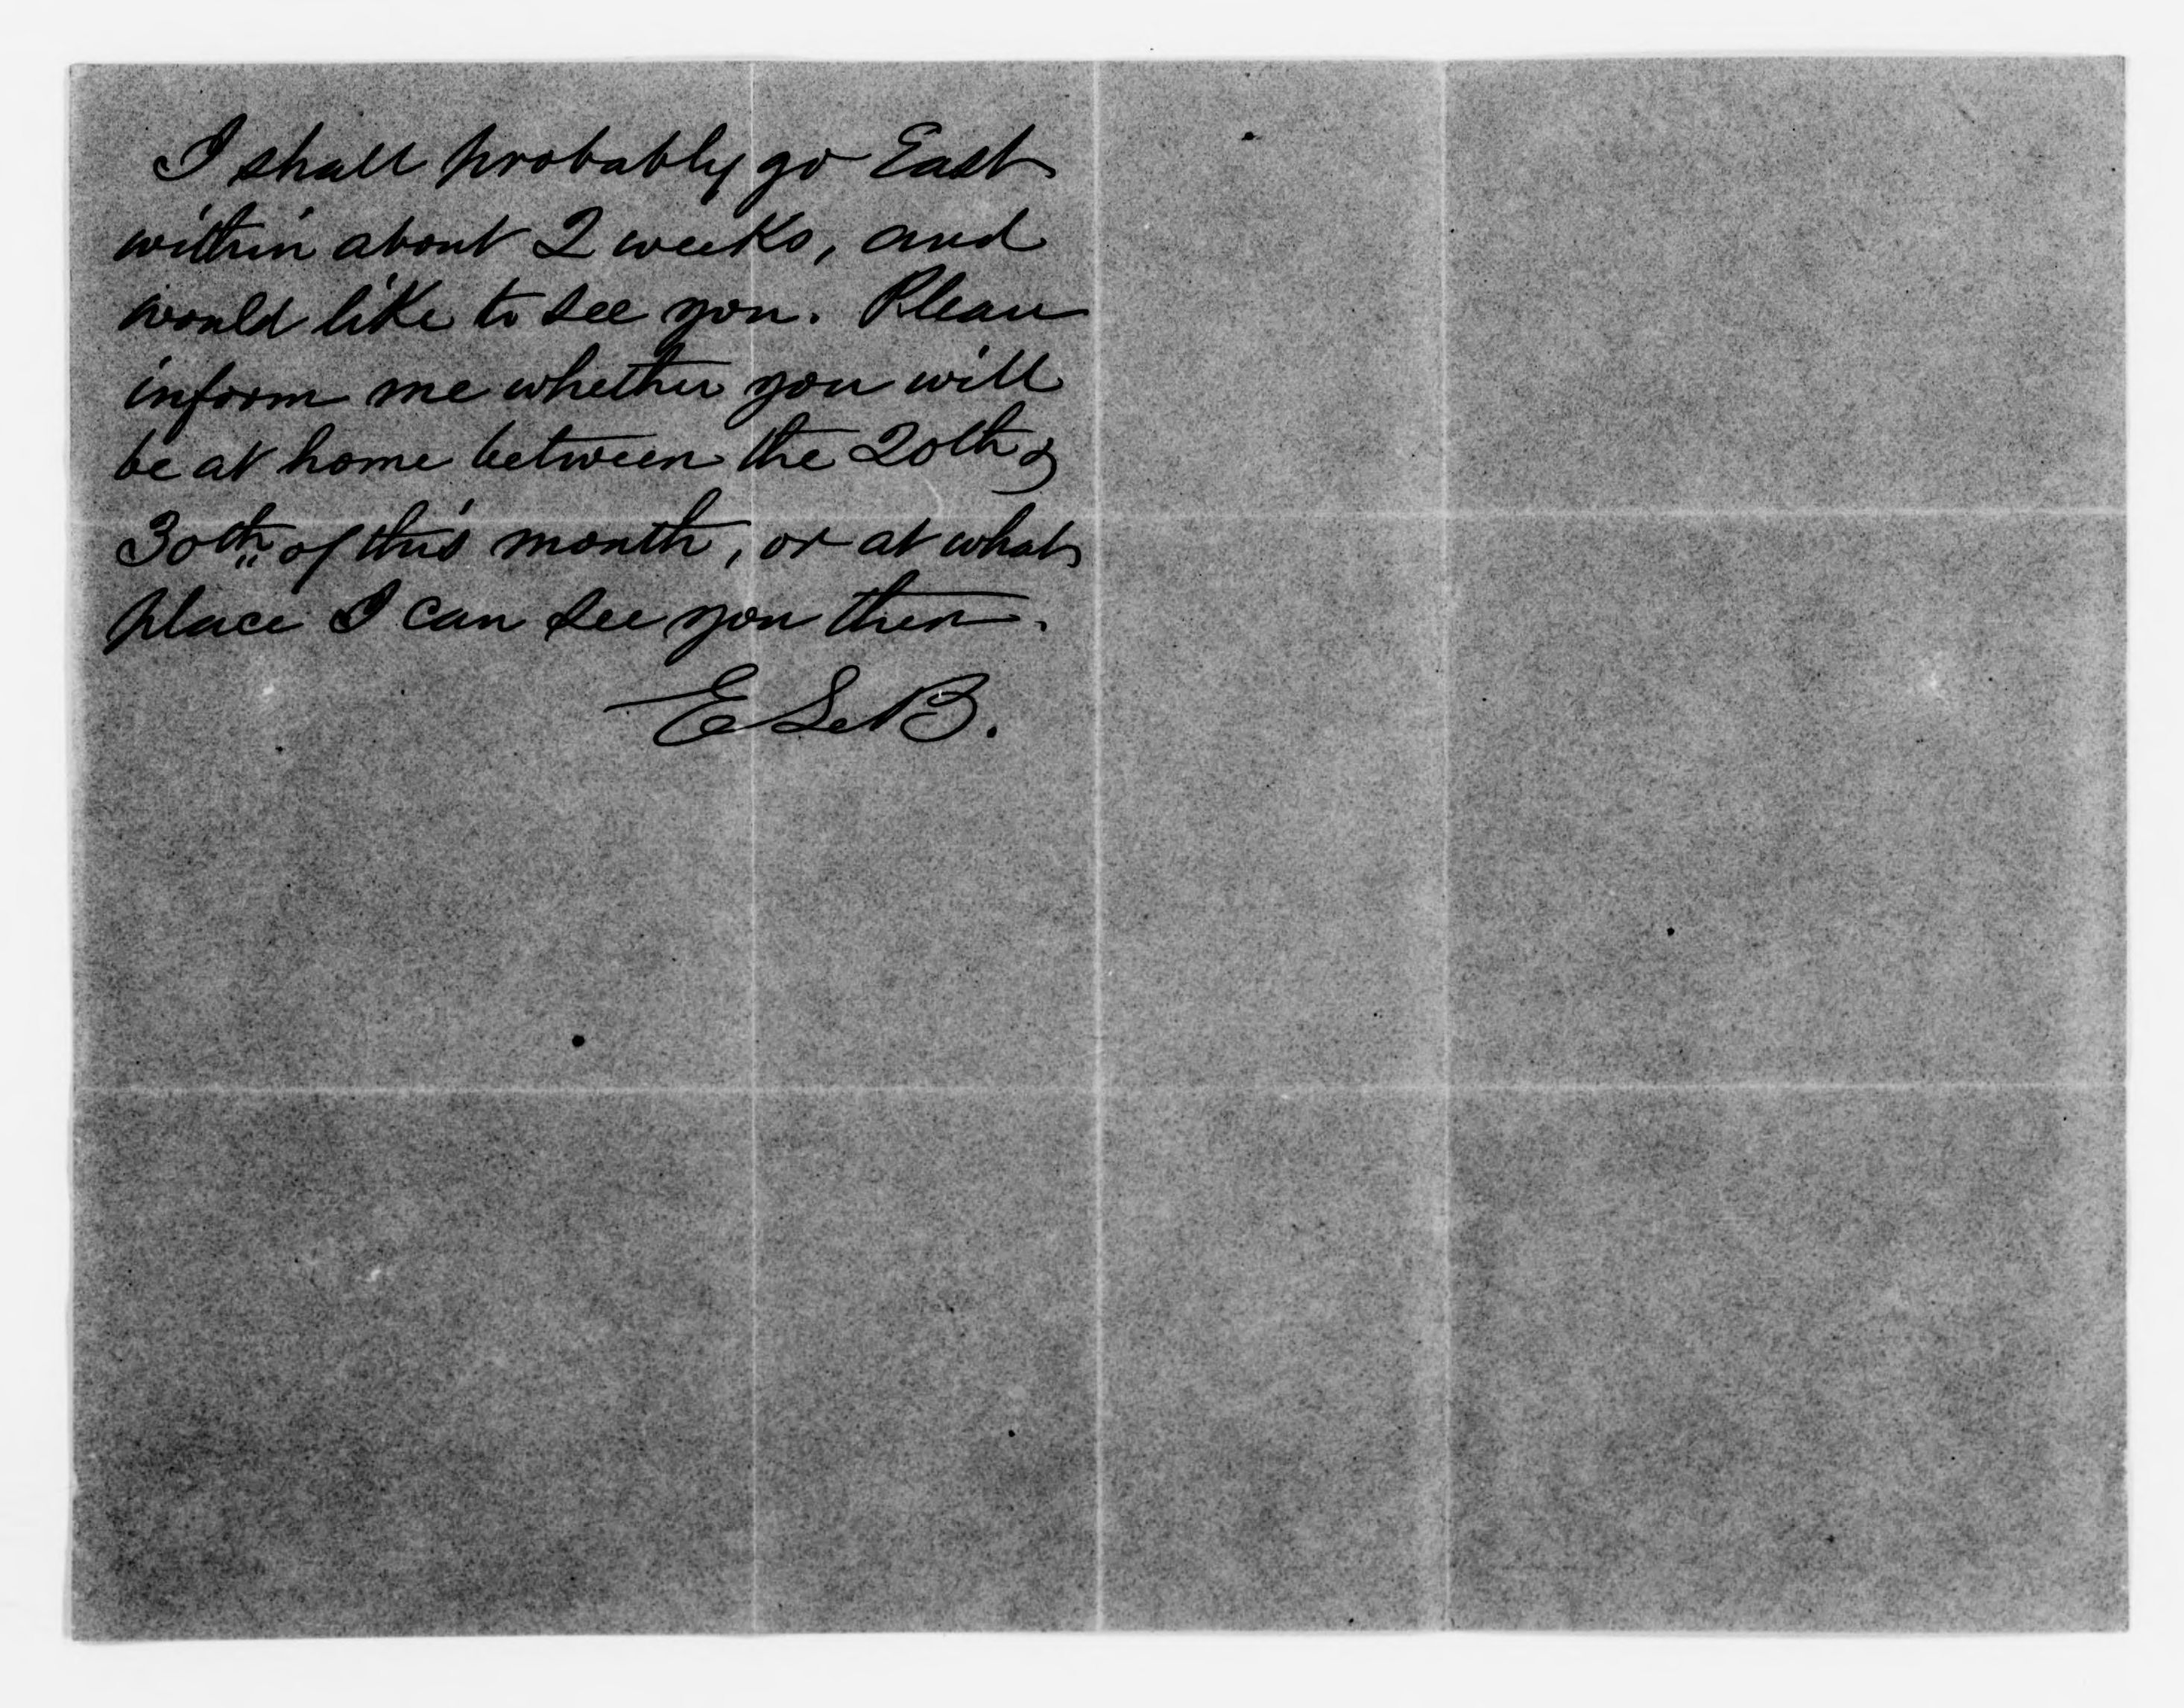 I shall probably go East
within about 2 weeks, and
would like to see you. Please
inform me whether you will
be at home between the 20th &
30th of this month, or at what
place I can see you then.
E L B.